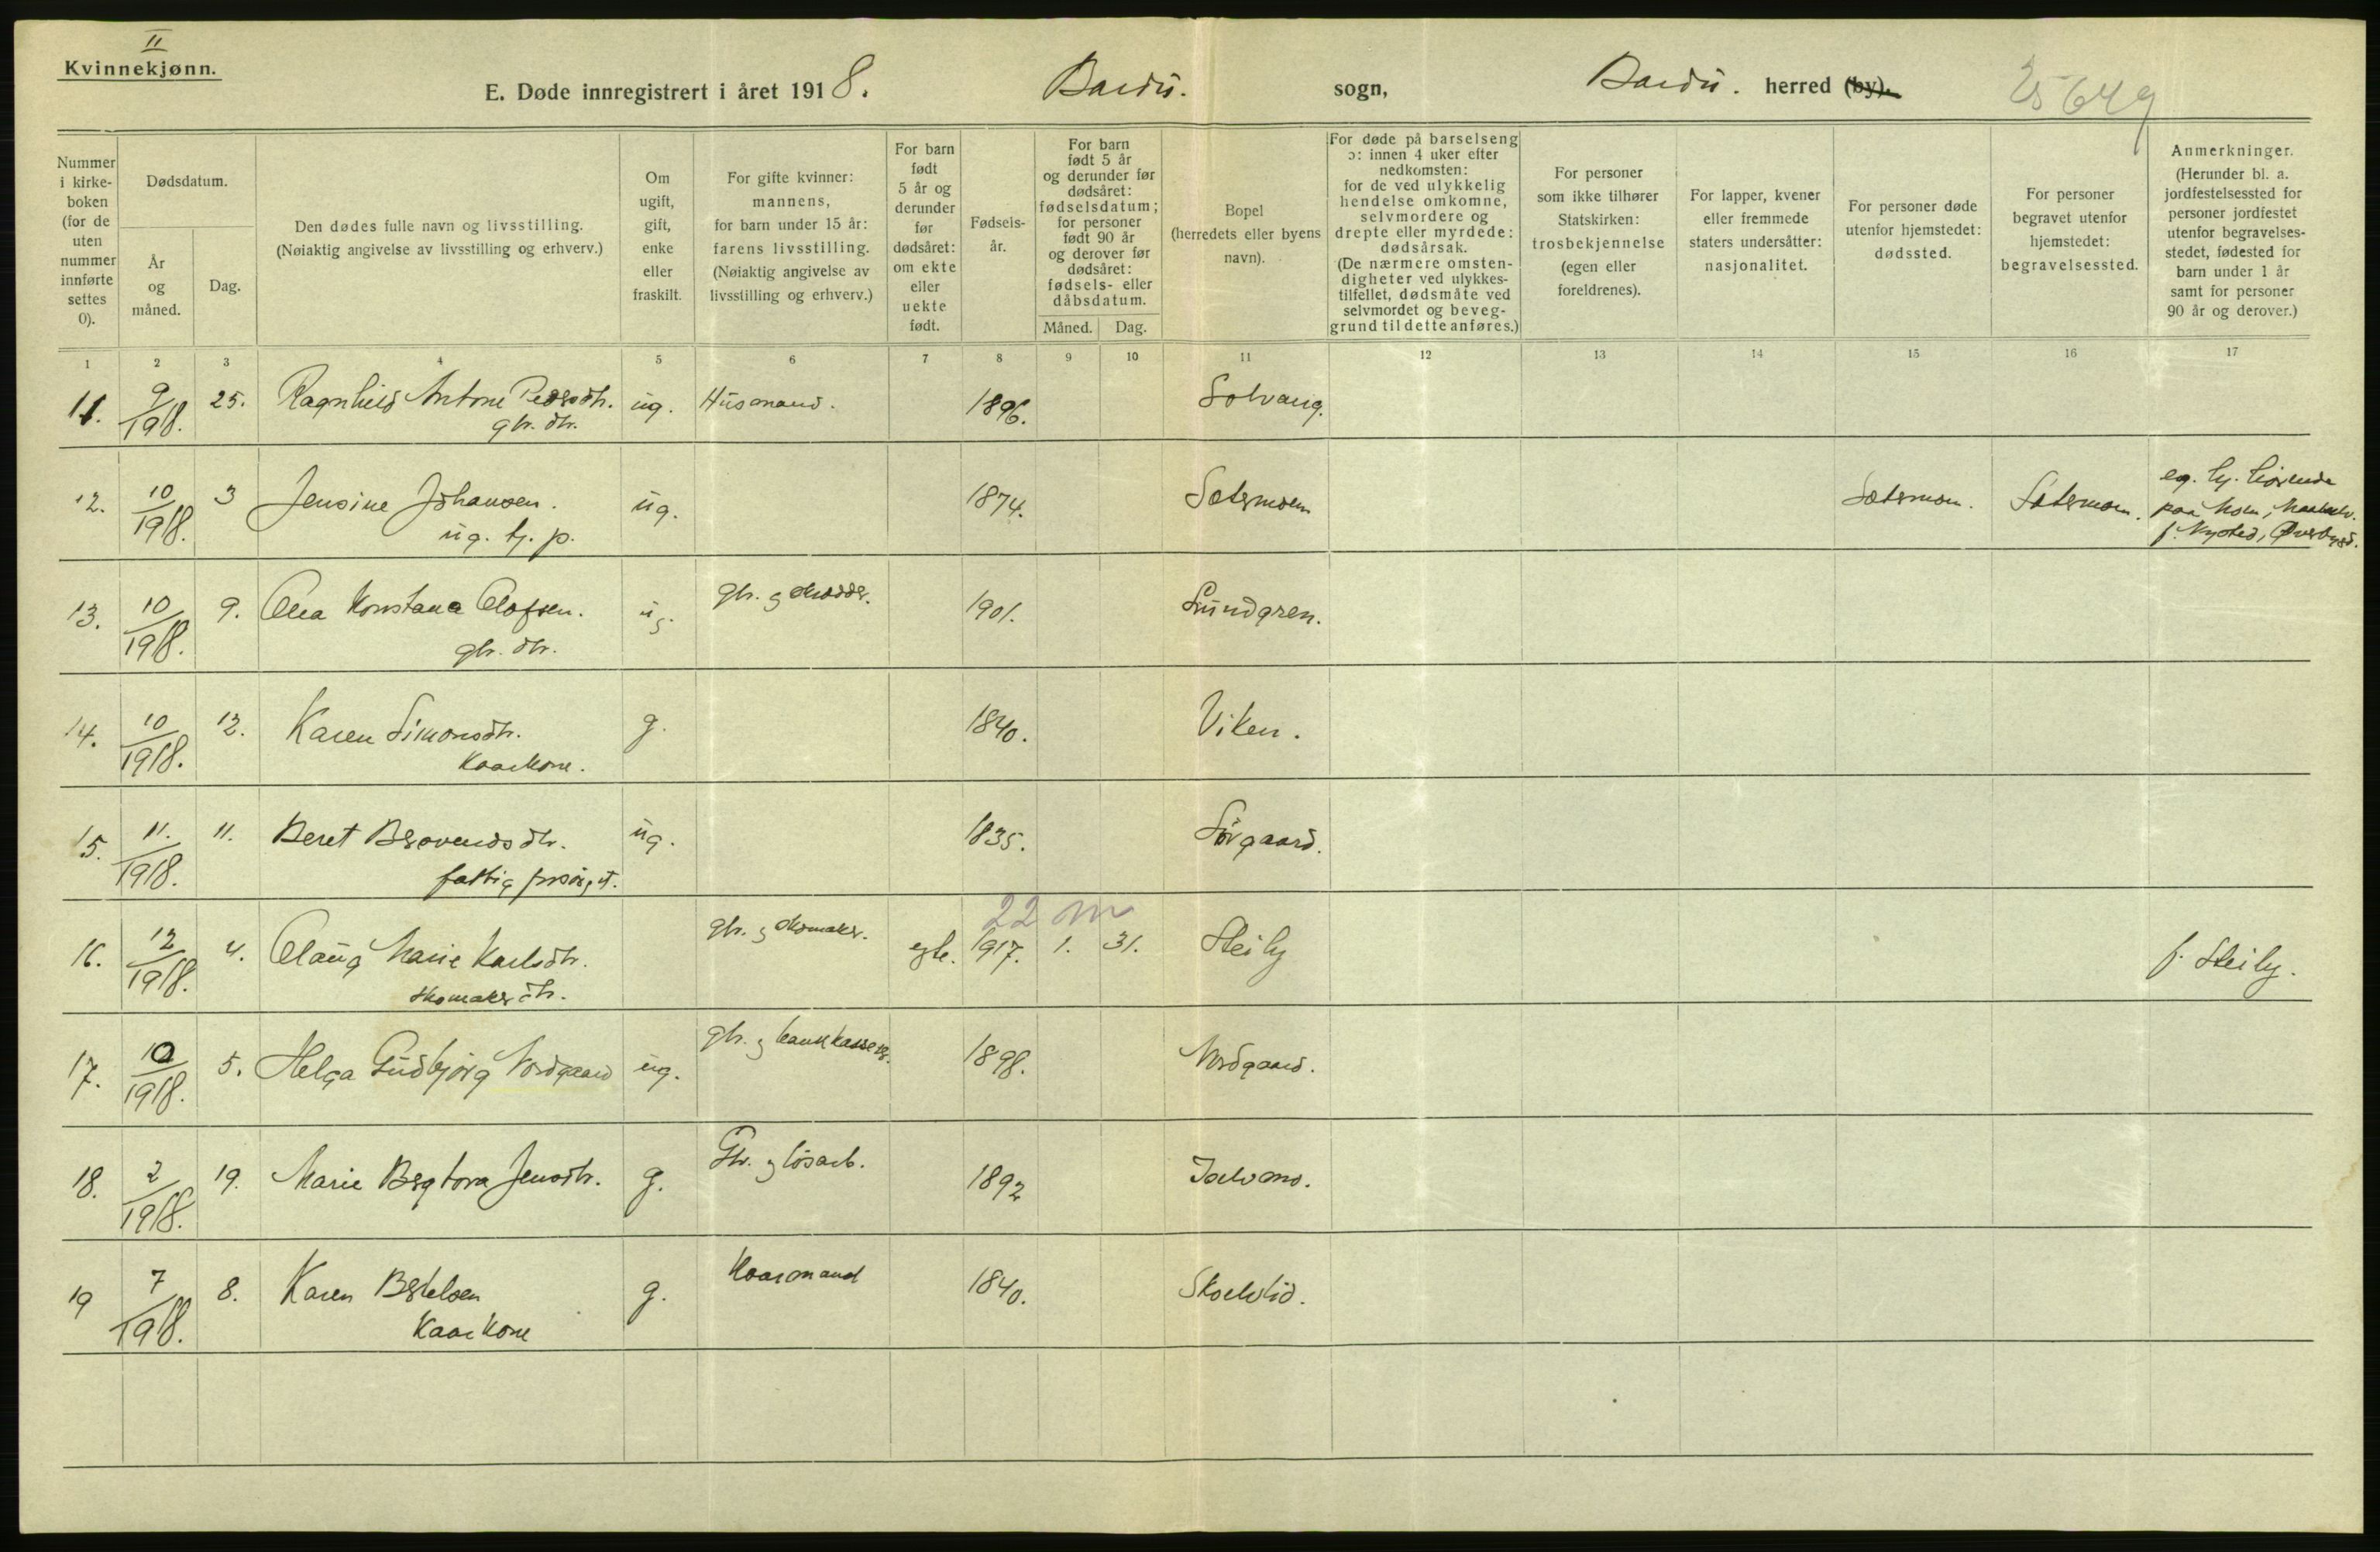 II
Kvinnekjønn.
E. Døde innregistrert i året 1918. Bardu. sogn, Bardu. herred (by).
25649
Nummer i kirkeboken (for de uten nummer innførte settes 0).
Dødsdatum.
År og måned.
Dag.
Den dødes fulle navn og livsstilling.
(Nøiaktig angivelse av livsstilling og erhverv.)
Om ugift, gift, enke eller fraskilt.
For gifte kvinner: mannens, for barn under 15 år: farens livsstilling. (Nøiaktig angivelse av livsstilling og erhverv.)
For barn født 5 år og derunder før dødsåret: om ekte eller uekte født.
Fødsels-år.
For barn født 5 år og derunder før dødsåret: fødselsdatum; for personer født 90 år og derover før dødsåret: fødsels- eller dåbsdatum.
Måned. Dag.
Bopel (herredets eller byens navn).
For døde på barselseng ɔ: innen 4 uker efter nedkomsten: for de ved ulykkelig hendelse omkomne, selvmordere og drepte eller myrdede: dødsårsak. (De nærmere omstendigheter ved ulykkestilfellet, dødsmåte ved selvmordet og beveggrund til dette anføres.)
For personer som ikke tilhører Statskirken: trosbekjennelse (egen eller foreldrenes).
For lapper, kvener eller fremmede staters undersåtter: nasjonalitet.
For personer døde utenfor hjemstedet: dødssted.
For personer begravet utenfor hjemstedet: begravelsessted.
Anmerkninger. (Herunder bl. a. jordfestelsessted for personer jordfestet utenfor begravelsesstedet, fødested for barn under 1 år samt for personer 90 år og derover.)
1 2 3 4 5 6 7 8 9 10 11 12 13 14 15 16 17
11. 9/1918. 25. Ragnhild Antone Pedersdtr. ug. Husmand. 1896. Solvang.
gbr. dtr.
12. 10/1918. 3 Jensine Johansen. ug. 1874. Sætermoen Sætermoen. Sætermoen.
ug. tj. p.
paa Moen, Maalselv.
f. Nysted, Øverbygd.
13. 10/1918. 9. Olea Konstanse Olofsen. ug. gbr. g skrædder. 1901. Lundgren.
gbr. dtr.
14. 10/1918. 12. Karen Simonsdtr. g. 1840. Viken.
Kaarkone.
15. 11./1918. 11. Beret Brovendsdtr. ug. 1835. Sørgaard.
fattig forsørget.
22 m
16. 12/1918. 4. Olaug Marie Karlsdtr. gbr. g skomaker. egte. 1917. 1. 31. Steily f. Steily.
skomakerdtr.
17. 10/1918. 5. Helga Gudbjørg Nordgaard ug. gbr. g bankkasserer. 1898. Nordgaard.
18. 2/1918. 19. Marie Bergtora Jensdtr. g. Gbr. g løsarb. 1892 Iselvmo.
19 7/1918. 8. Karen Bertelsen g. Kaarmand 1840. Skoelvlid.
Kaarkone